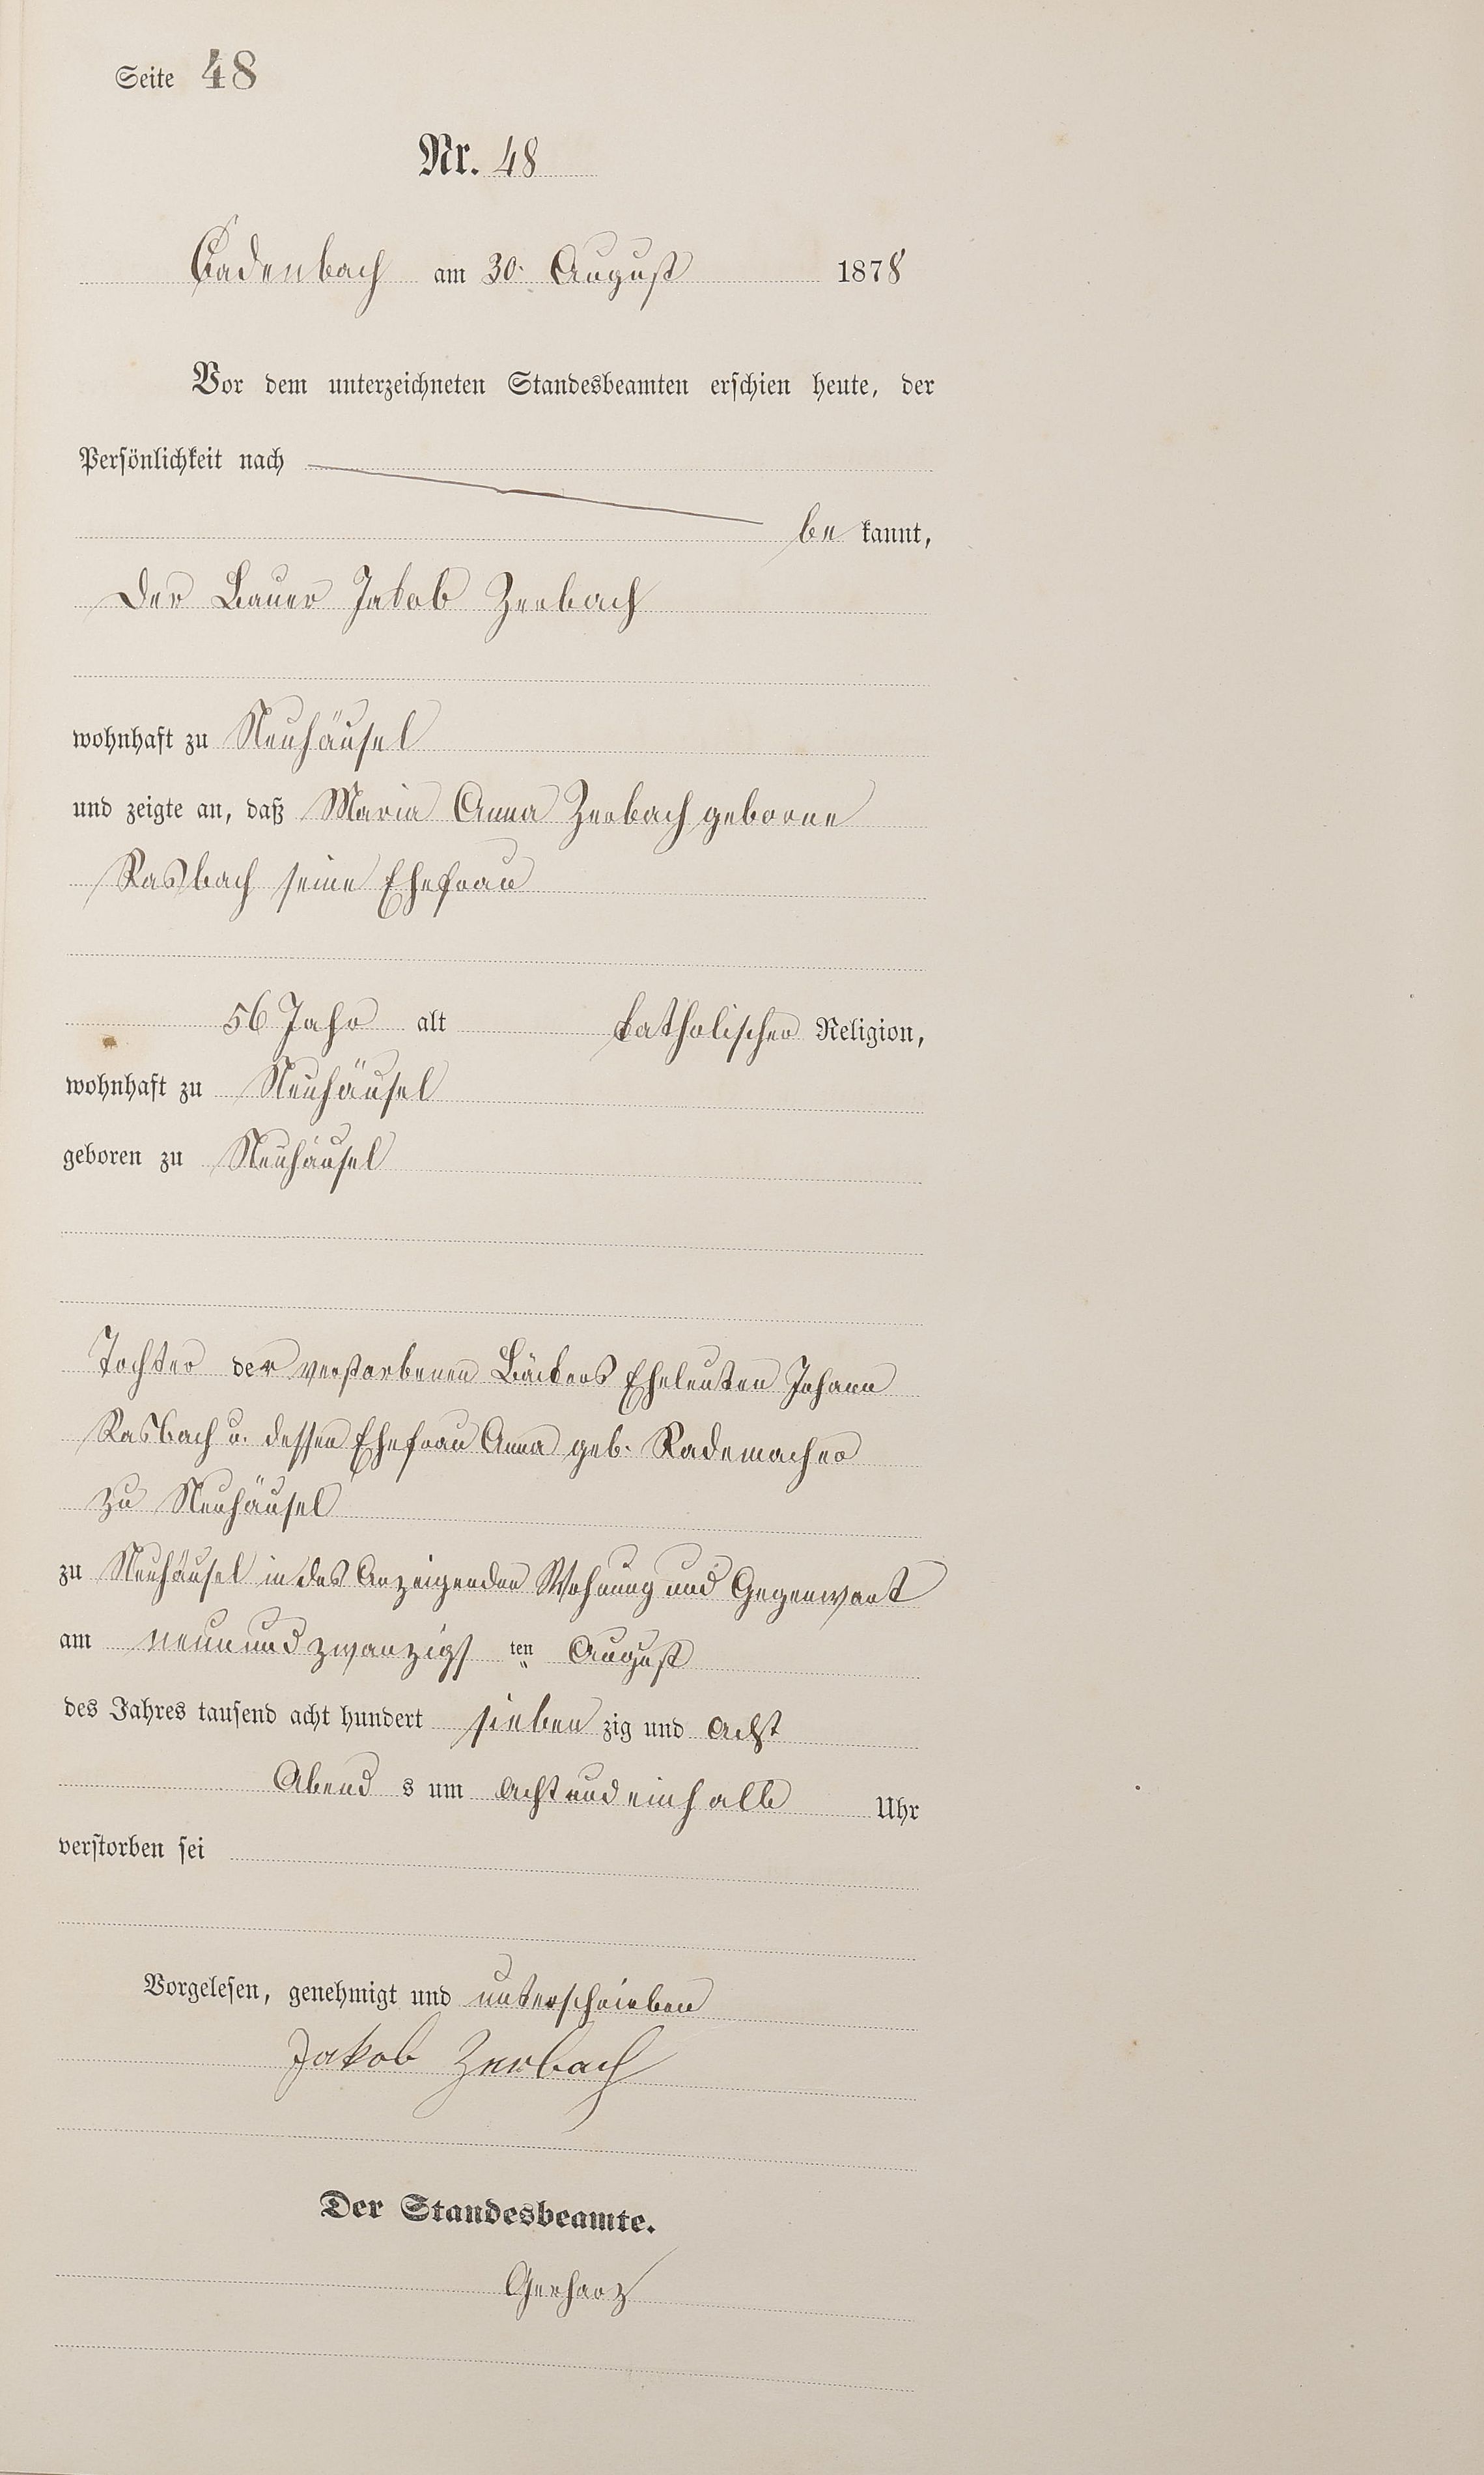 Seite 48
Nr. 48
Cadenbach am 30. August 1878
Vor dem unterzeichneten Standesbeamten erschien heute, der
Persönlichkeit nach
be kannt,
Der Bauer Jakob Zerbach
wohnhaft zu Neuhäusel
und zeigte an, daß Maria Anna Zerbach geborne
Rasbach seine Ehefrau
56 Jahr alt katholischer Religion,
wohnhaft zu Neuhäusel
geboren zu Neuhäusel
Tochter der verstorbenen Bäckers Eheleuten Johann
Rasbach u. dessen Ehefrau Anna geb. Rademacher
zu Neuhäusel
zu Neuhäusel in des Anzeigenden Wohnung und Gegenwart
am neunundzwanzigs ten August
des Jahres tausend acht hundert sieben zig und acht
Abend s um acht und einhalb Uhr
verstorben sei
Vorgelesen, genehmigt und unterschrieben
Jakob Zerbach
Der Standesbeamte.
Gerharz